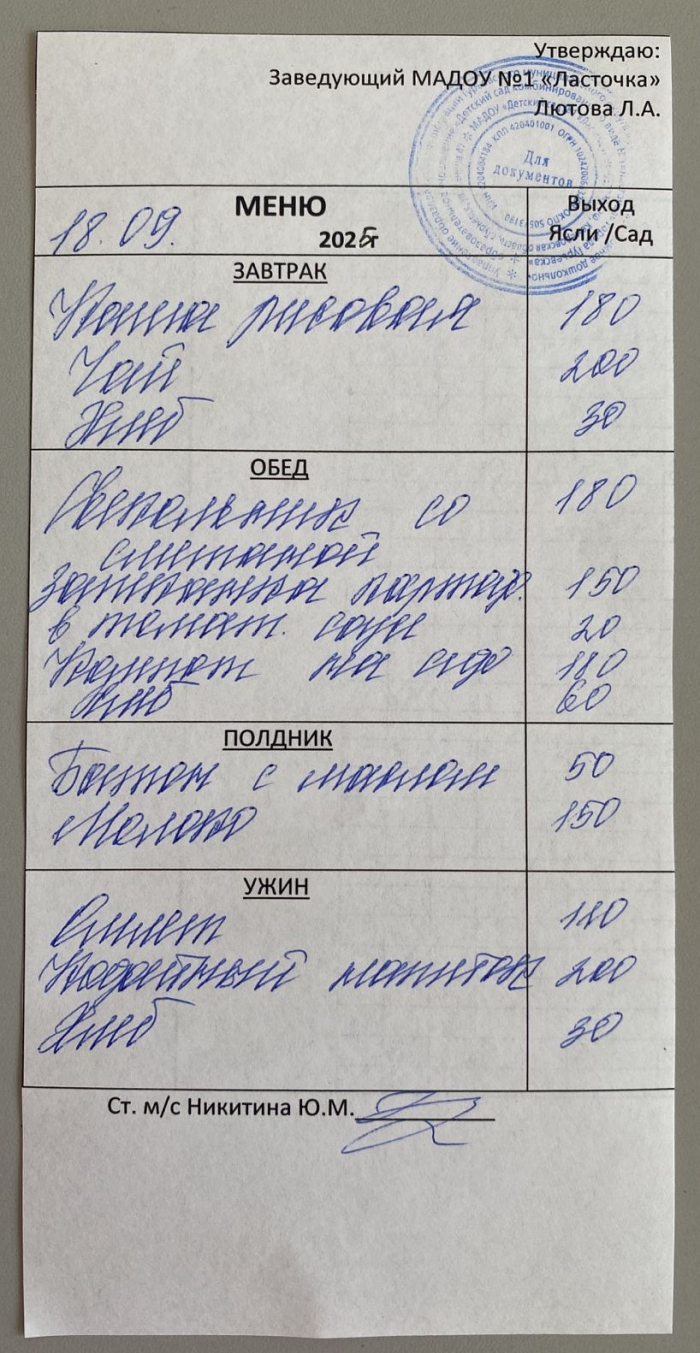 Утверждаю:
Заведующий МАДОУ №1 «Ласточка»
Лютова Л.А.
Для
документов
МЕНЮ
Выход
18.09.
2025г
Ясли /Сад
ЗАВТРАК
Каша рисовая 180
Чай 200
Хлеб 30
ОБЕД
Свекольник со 180
сметаной
Запеканка картоф. 150
в томат. соусе 20
Компот 180
Хлеб 60
ПОЛДНИК
Батон с маслом 50
Молоко 150
УЖИН
Омлет
Кофейный напиток 200
Хлеб 30
Ст. м/с Никитина Ю.М.